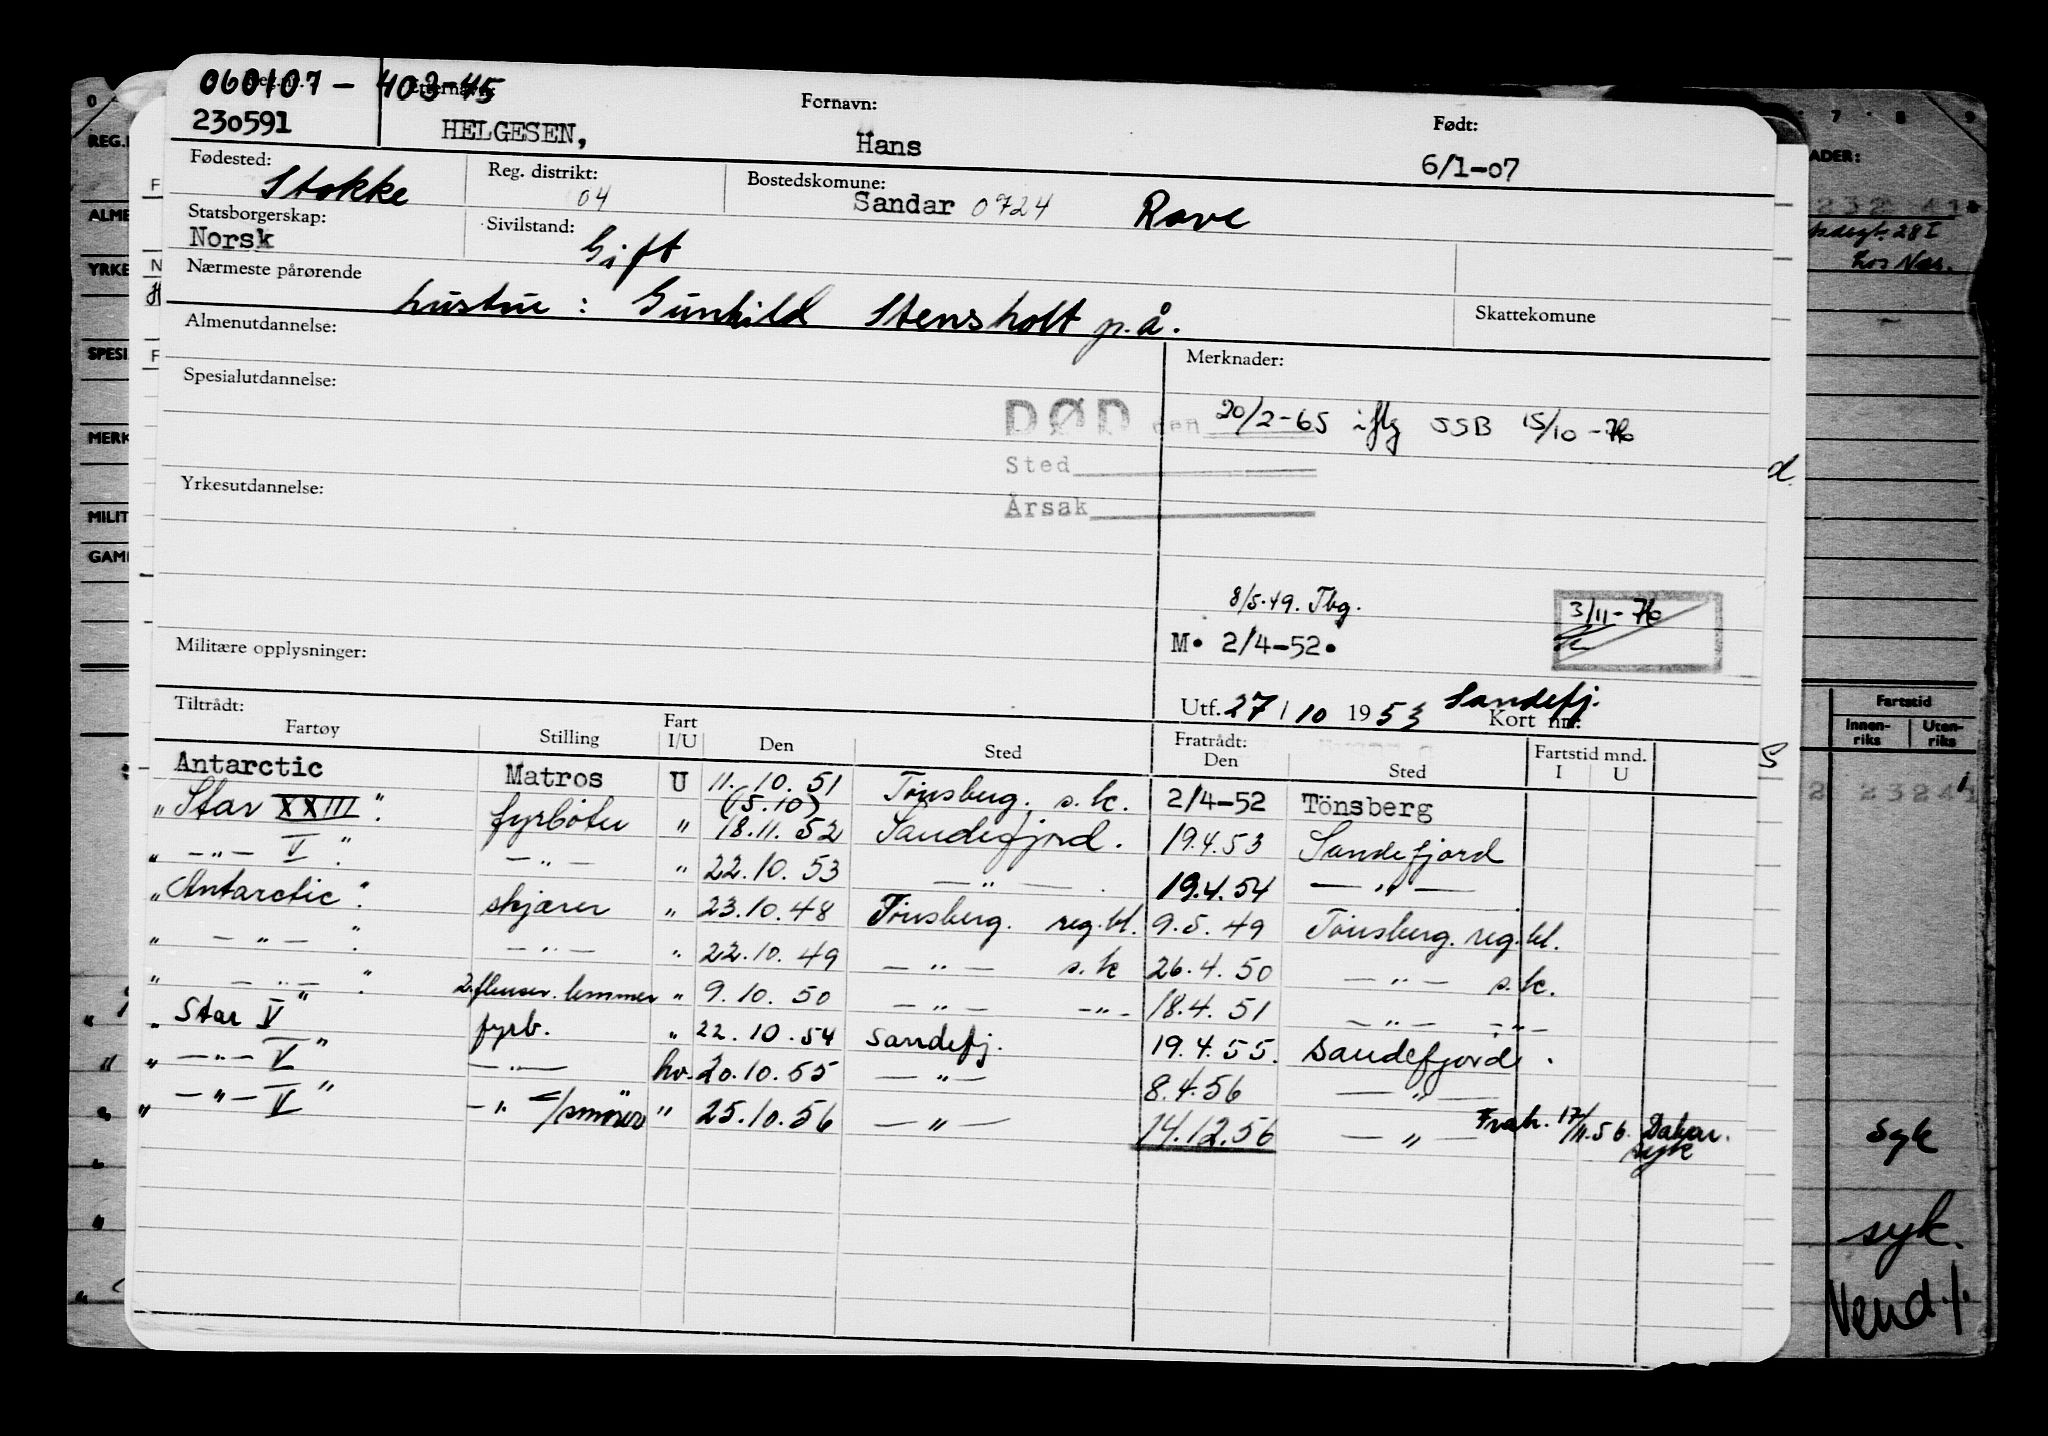 060107 - 403-45
Reg.nr. Etternavn: Fornavn: Født:
230591 HELGESEN, Hans 6/1-07
Fødested: Stokke Reg. distrikt: 04 Bostedskomune: Sandar 0724 Rove
Statsborgerskap: Norsk Sivilstand: Gift
Nærmeste pårørende hustru : Gunhild Stensholt p.å. Skattekomune
Almenutdannelse: Merknader:
Spesialutdannelse:
DØD den 20/2-65 iflg SSB 15/10-76
Sted
Årsak
Yrkesutdannelse:
8/5.49. Tbg. 3/11-76
M. 2/4-52.
Militære opplysninger:
Utf. 27 / 10 1953 Sandefj. Kort nr.
Tiltrådt: Fratrådt:
Fartøy Stilling Fart I/U Den Sted Den Sted Fartstid mnd. I U
Antarctic Matros U 11. 10. 51 (5.10) Tönsberg. s.k. 2/4-52 Tönsberg
"Star XXIII". fyrböter " 18.11. 52 Sandefjord. 19.4.53 Sandefjord
" -"- V ". -"- " 22.10. 53 -"- 19.4.54 -"-
"Antarctic". skjærer " 23.10.48 Tönsberg. reg.bl. 9.5.49 Tönsberg. reg.bl.
" -"- ". -"- " 22.10.49 -"- s.k 26.4.50 -"- s.k.
" -"- ". 2.flenser.lemmer " 9.10. 50 -"- -"- 18.4. 51 -"- -"-
" Star V" fyrb. " 22.10.54 Sandefj. 19.4.55. Sandefjord.
" -"- V" -"- hv. 20.10.55 -"- 8.4.56 -"-
" -"- V" -"- /smörer " 25.10.56 -"- 14.12.56 -"- Fratr. 17/11.56. Dakar. syk
REG. ALME YRKE SPESI MERK MILIT GAM
ADER:
232 41
28 I
hos
Fartstid
Innen-riks Uten-riks
23241
syk
syk.
Vend